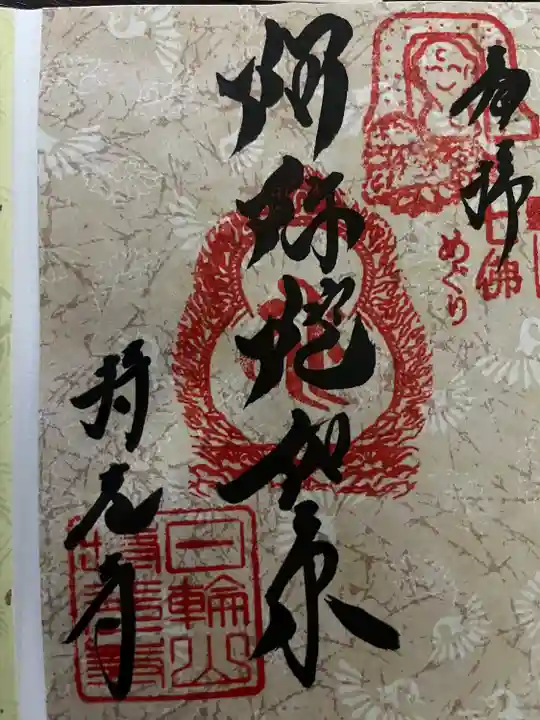 奉拝
七佛
めぐり
阿弥陀如来
持光寺
日輪山